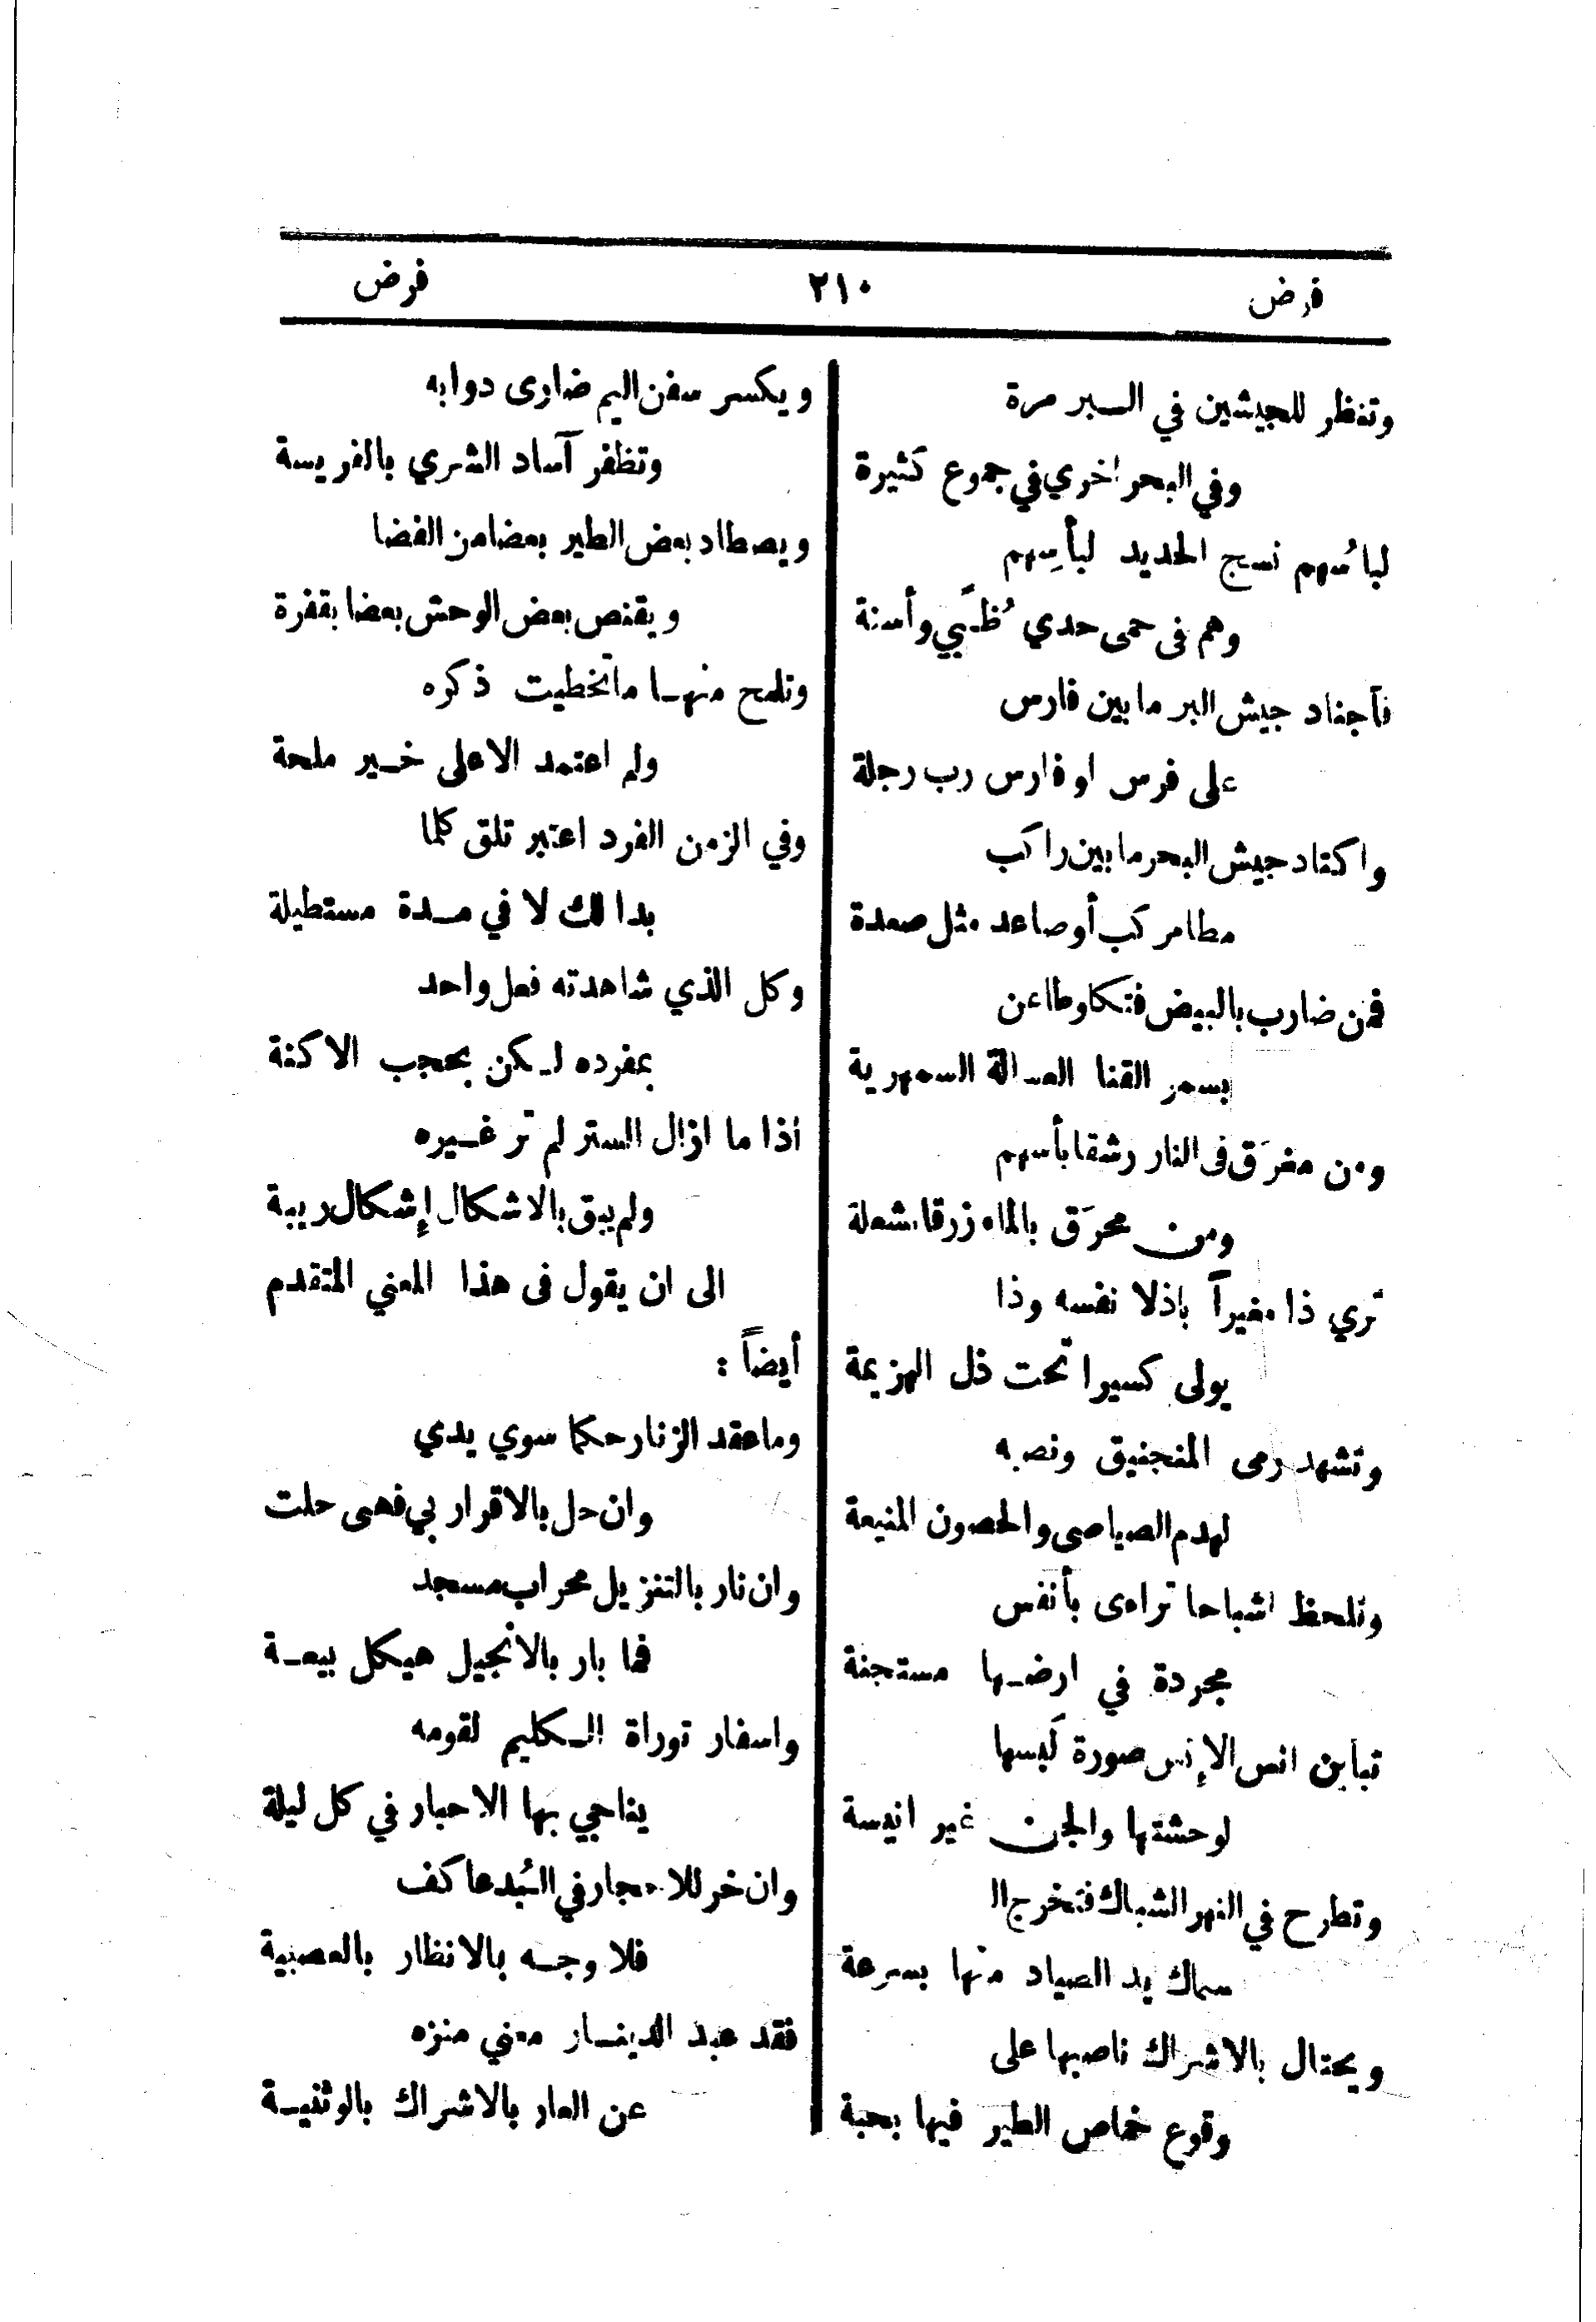 فرض ٢١٠ فرض
وتنظر للجيشين في الـبر مرة
وفي البحر اخري في جموع كثيرة
لباسُهم نسج الحديد لبأسِهم
وهم فى حمى حدي ظُـبَي وأسنة
فأجناد جيش البر ما بين فارس
على فرس او فارس رب رجلة
واكتاد جيش البحر ما بين راكب
مطا مركب أو صاعد مثل صعدة
فمن ضارب بالبيض فتكا وطاعن
بسمر القنا العسالة السمهرية
ومن مغرَق فى النار رشقا بأسهم
ومن محرَق بالماء زرقا بشعلة
تري ذا مغيراً باذلا نفسه وذا
يولى كسيرا تحت ذل الهزيمة
وتشهد رمى المنجنيق ونصبه
لهدم الصياصى والحصون المنيعة
وتلحظ اشباحا تراءى بأنفس
مجردة في ارضـها مستجنة
تباين انس الإنس صورة لَبسها
لوحشتها والجن غير انيسة
وتطرح في النهر الشباك فتخرج الـ
سماك يد الصياد منها بسرعة
ويحتال بالاشراك ناصبها على
وقوع خماص الطير فيها بحبة
ويكسر سفن اليم ضارى دوابه
وتظفر آساد الشري بالفريسة
ويصطاد بعض الطير بعضا من الفضا
ويقنص بعض الوحش بعضا بقفرة
وتلمح منهـا ما تخطيت ذكره
ولم اعتمد الا على خـير ملحة
وفي الزمن الفرد اعتبر تلق كلما
بدا لك لا في مـدة مستطيلة
وكل الذي شاهدته فعل واحد
بمفرده لـكن بحجب الاكنة
اذا ما ازال الستر لم تر غـيره
ولم يبق بالاشكال إشكال ريبة
الى ان يقول فى هذا المعني المتقدم
أيضاً :
وما عقد الزنار حكما سوي يدي
وان حل بالاقرار بي فهى حلت
وان نار بالتنزيل محراب مسجد
فما بار بالانجيل هيكل بيعـة
واسفار توراة الـكليم لقومه
يناجي بها الاحبار في كل ليلة
وان خر للاحجار في البُد عاكف
فلا وجـه بالانظار بالعصبية
فقد عبد الدينـار معني منزه
عن العار بالاشراك بالوثنيـة